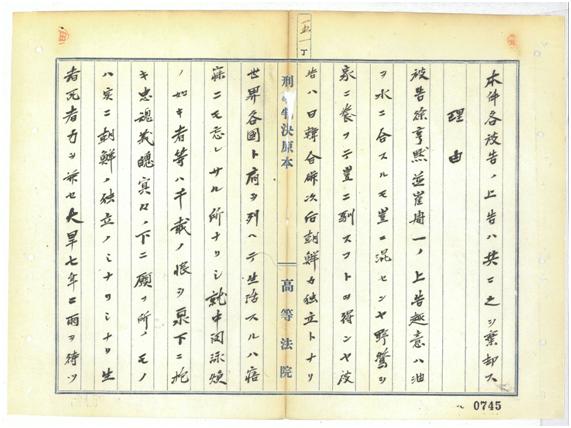 本件各被告ノ上告ハ共ニ之ヲ棄却ス
理由
被告徐亨黙並崔庸一ノ上告趣意ハ油
ヲ水ニ合スルモ豈ニ混センヤ野鶩ヲ
家ニ養フテ豈ニ馴スコトヲ得ンヤ被
告ハ日韓合併次后朝鮮カ独立トナリ
刑事判決原本
高等法院
世界各國ト府ヲ列ヘテ生活スルハ寤
寐ニモ忘レサル所ナリシ就中閔泳煥
ノ如キ者等ハ千載ノ恨ヲ泉下ニ抱
キ忠魂義魄冥々ノ下ニ願フ所ノモノ
ハ実ニ朝鮮ノ独立ノミナリシナリ生
者死者力ヲ并セ大旱七年ニ雨ヲ待ツ
0745